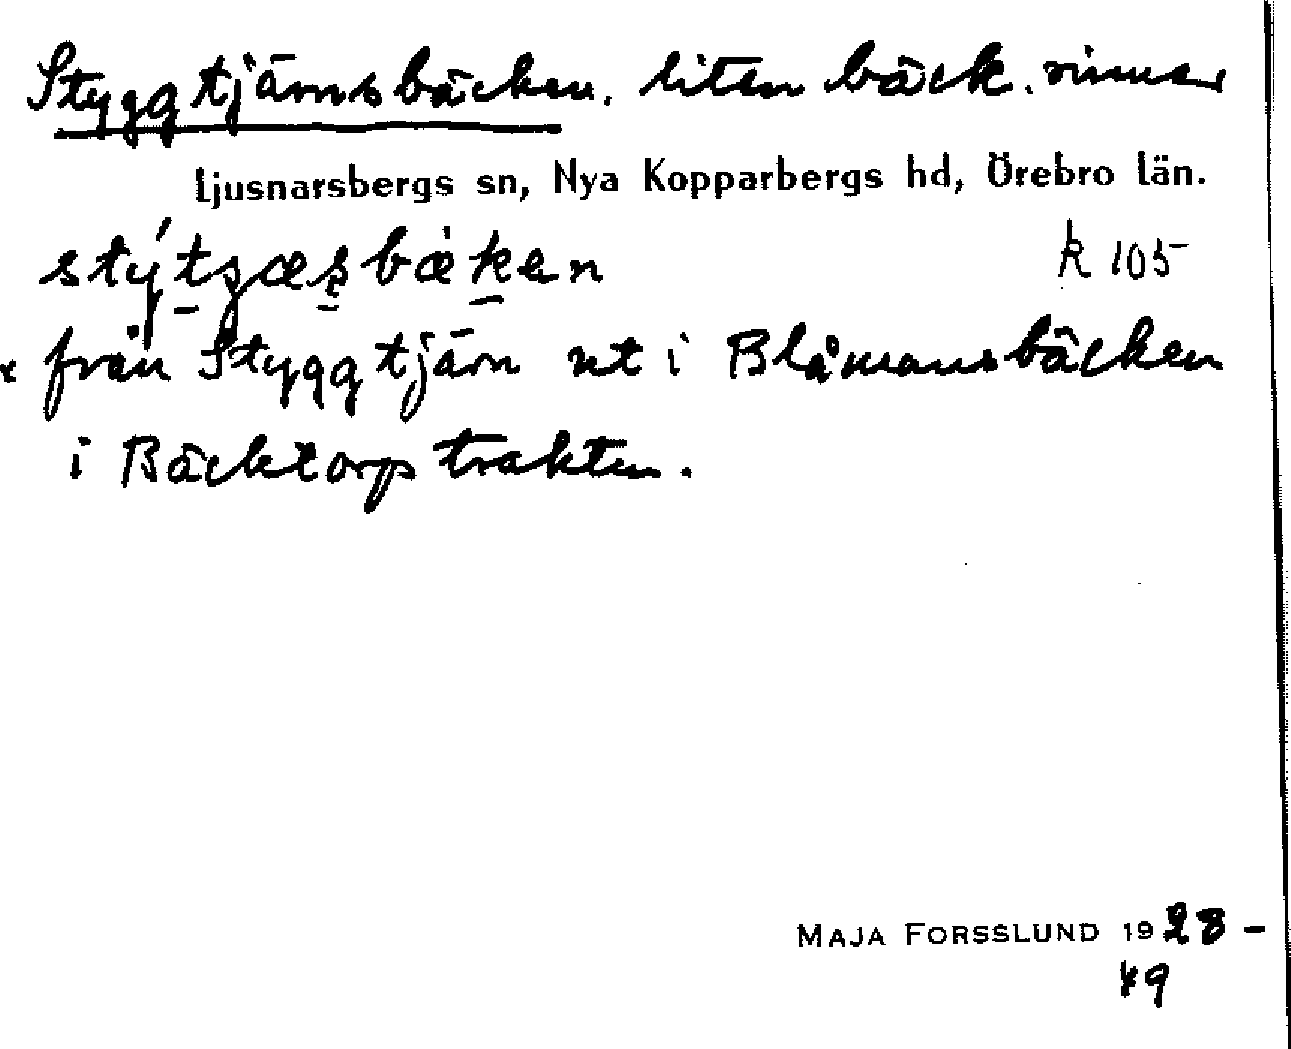 Styggtjärnsbäcken. liten bäck. rinner
Ljusnarsbergs sn, Nya Kopparbergs hd, Örebro län.
k 105
från Styggtjärn ut i Blåmansbäcken
i Bäcktorp trakten.
MAJA FORSSLUND 1928-
49